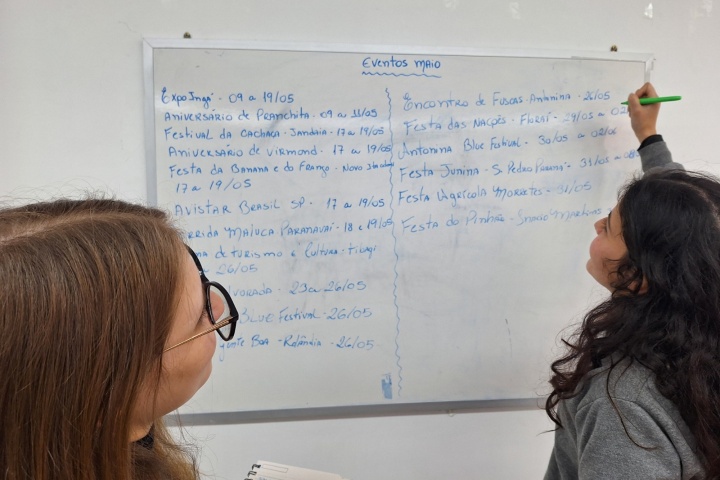 Eventos maio
Expo Ingá - 09 a 19/05
Aniversário de Pranchita - 09 a 11/05
Festival da Cachaça - Jandaia - 17 a 19/05
Aniversário de Virmond - 17 a 19/05
Festa da Banana e do Frango - Novo
17 a 19/05
Avistar Brasil SP - 17 a 19/05
Maluca Paranavaí - 18 e 19/05
de turismo e Cultura - Tibagi
26/05
23 a 26/05
Blue Festival - 26/05
Boa - Rolândia - 26/05
Encontro de Fuscas - Antonina - 26/05
Festa das Nações - Floraí - 29/05 a 02
Antonina Blue Festival - 30/05 a 02/06
Festa Junina - S. Pedro Paraná - 31/05 a
Festa Agrícola Morretes - 31/05
Festa do Pinhão - Inácio Martins